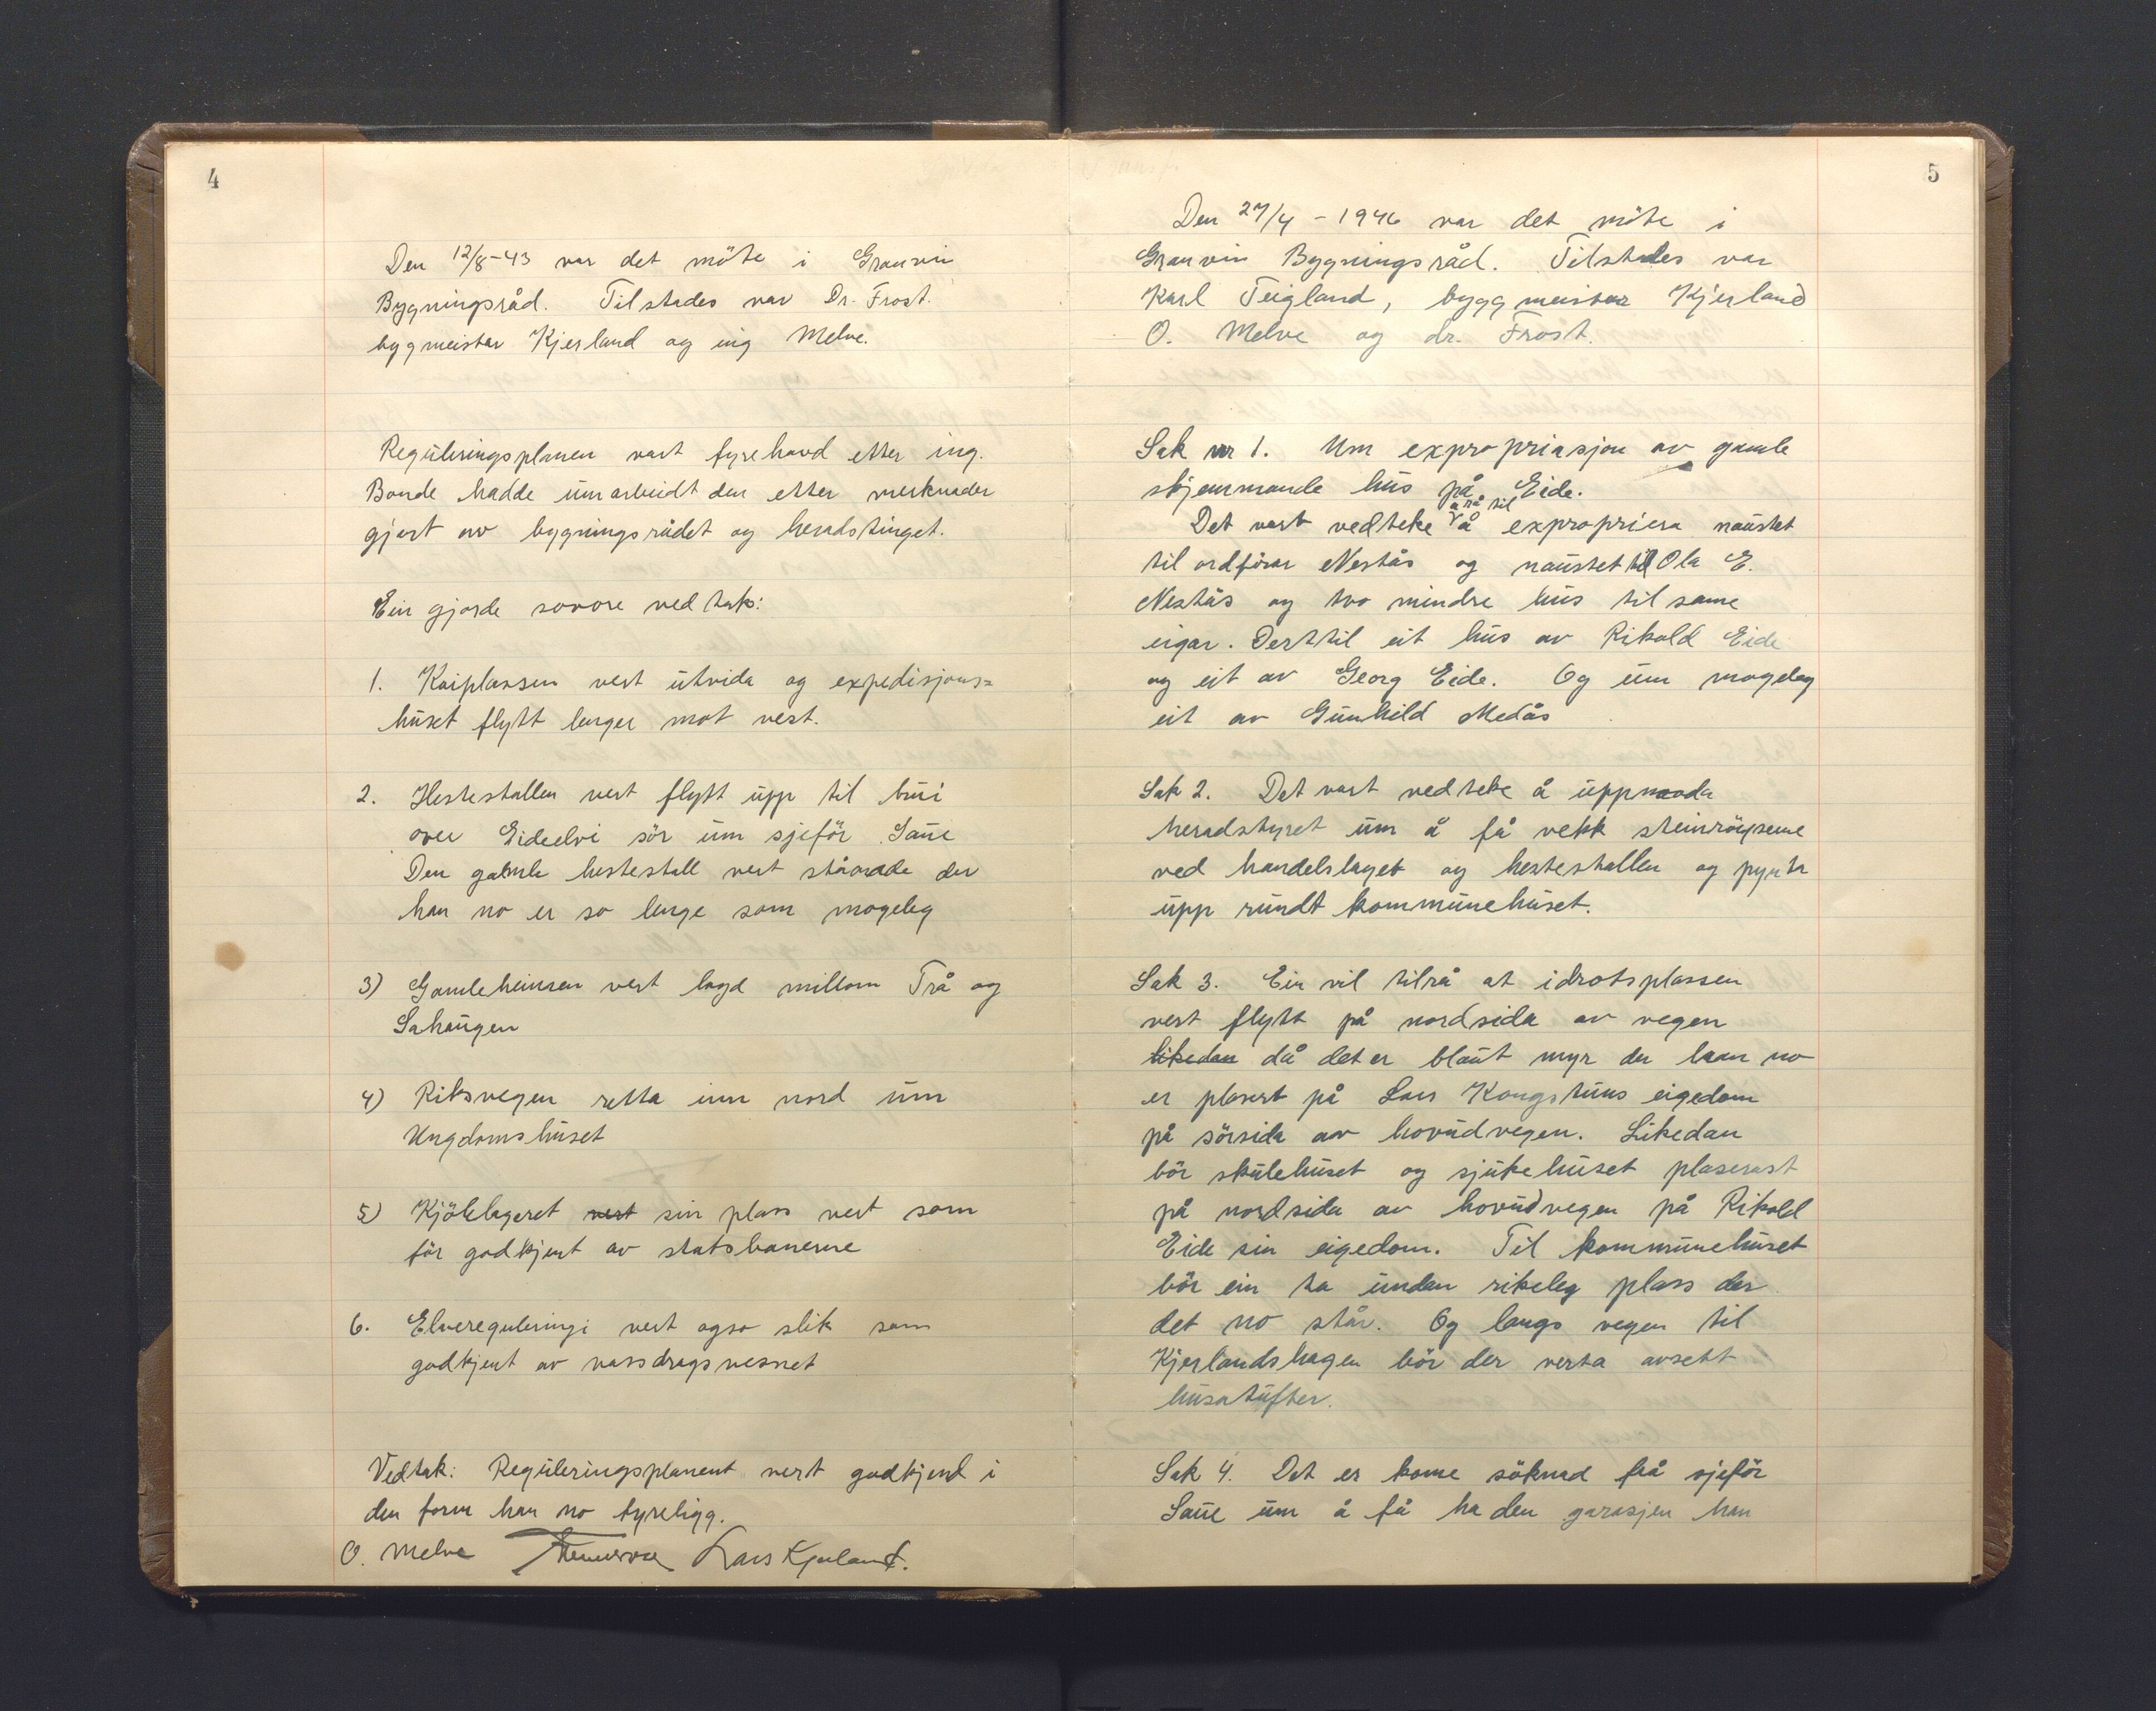 4
Den 12/8-43 var det möte i Granvin
Bygningsråd. Tilstades var Dr. Frost.
bygmeister Kjerland og ing Melve.
Reguleringsplanen vart fyrehavd etter ing.
Bonde hadde umarbeidt den etter merknader
gjort av bygningsrådet og heradstinget.
Ein gjorde sovore vedtak:
1. Kaiplassen vert utvida og expedisjons=
huset flytt lenger mot vest.
2. Hestestallen vert flytt upp til brui
over Eideelvi sör um sjeför Saue
Den gamle hestestall vert ståande der
han no er so lenge som mogeleg
3) Gamleheimen vert lagd millom Trå og
Sahaugen
4) Riksvegen retta inn nord um
Ungdomshuset
5) Kjölelageret vert sin plass vert som
för godkjent av statsbanerne
6. Elvereguleringi vert ogso slik som
godkjent av vassdragsvesnet
Vedtak: Reguleringsplanent vert godkjend i
den form han no fyreligg.
O. Melve Lars Kjerland.
5
Den 27/4 - 1946 var det möte i
Granvin Bygningsråd. Tilstades var
Karl Teigland, byggmeister Kjerland
O. Melve og dr. Frost.
Sak nr 1. Um expropriasjon av gamle
skjemmande hus på Eide.
å rå til
Det vart vedteke å expropriera naustet
til ordförar Nestås og naustet til Ola E.
Nestås og tvo mindre hus til same
eigar. Derttil eit hus av Rikold Eide
og eit av Georg Eide. Og um mogeleg
eit av Gunhild Medås
Sak 2. Det vart vedteke å uppmoda
heradstyret um å få vekk steinröysene
ved handelslaget og hestestallen og pynta
upp rundt kommunehuset.
Sak 3. Ein vil tilrå at idrotsplassen
vert flytt på nordsida av vegen
likedan då det er blaut myr der han no
er plasert på Lars Kongstuns eigedom
på sörsida av hovudvegen. Likedan
bör skulehuset og sjukehuset plaserast
på nordsida av hovudvegen på Rikold
Eide sin eigedom. Til kommunehuset
bör ein ta undan rikeleg plass der
det no står. Og langs vegen til
Kjerlandshagen bör der verta avsett
husatufter.
Sak 4. Det er kome söknad frå sjeför
Saue um å få ha den garasjen han